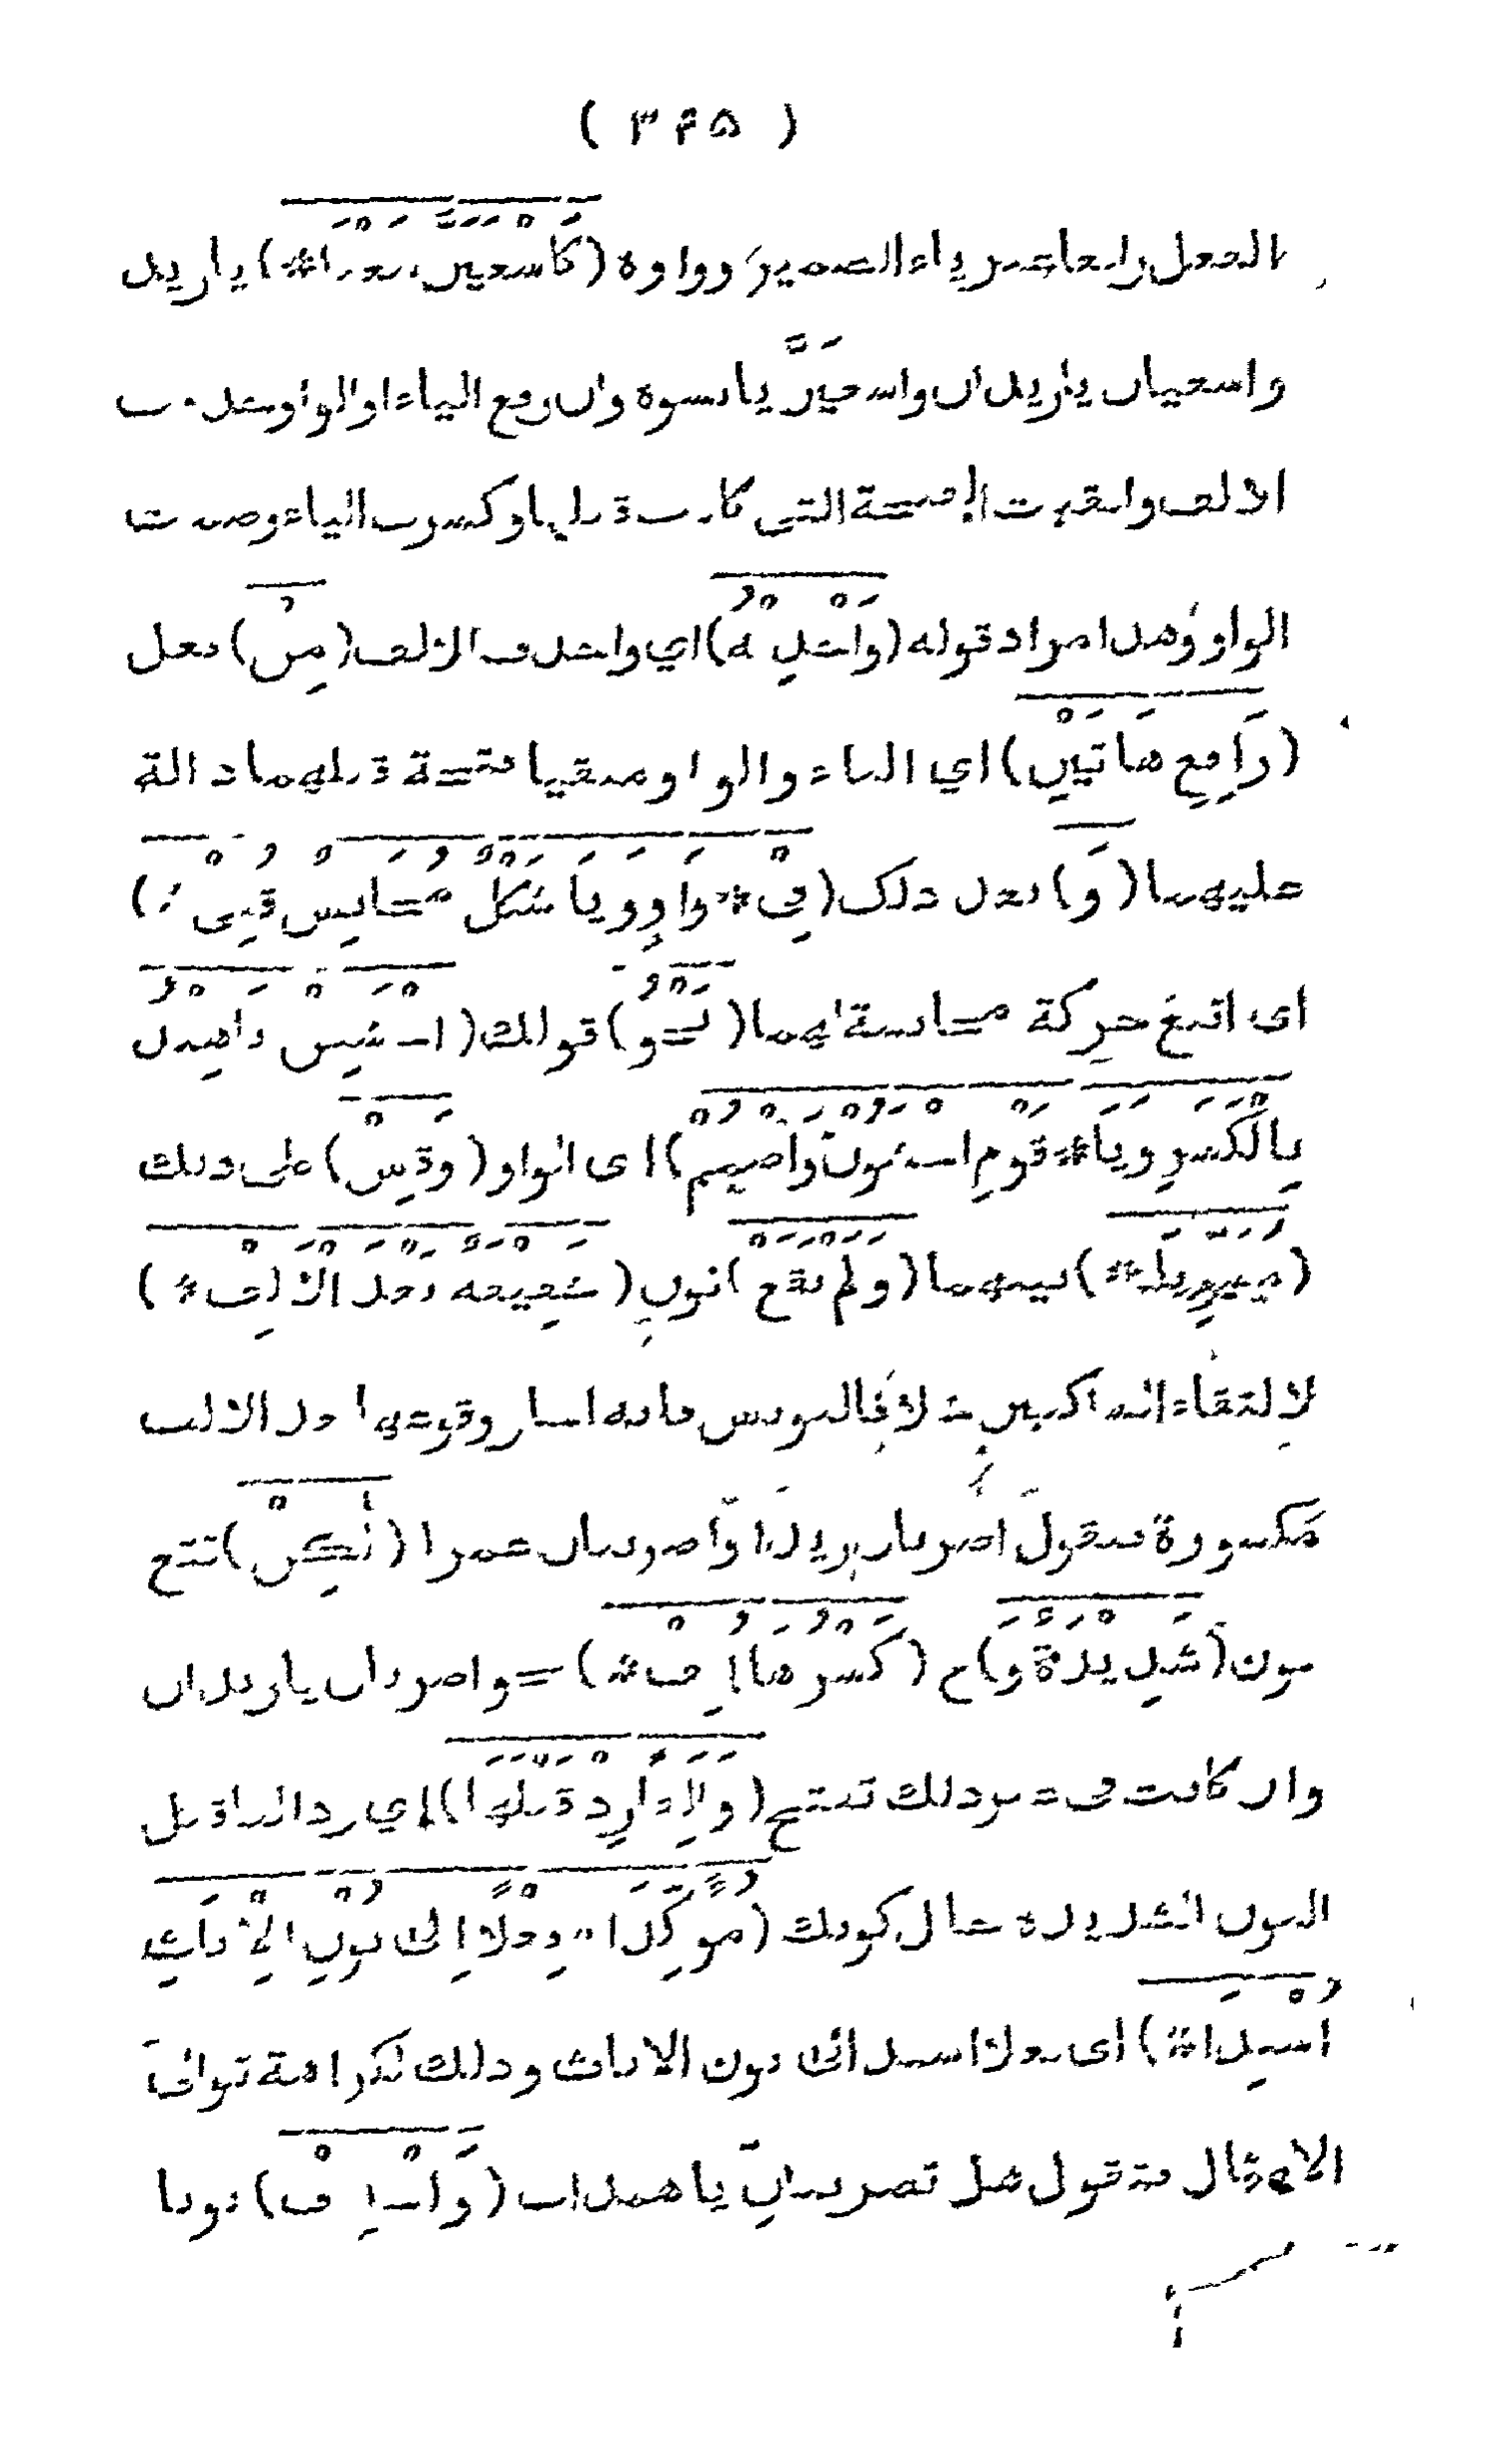 ( ٣٦٥ )
الفعل رافعا غير ياء الضمير وواوه (كَاسْعَيَنَّ سَعْيَا*) يا زيد
واسعيان يا زيدان واسعينانّ يا نسوة وان رفع الياء او الواو حذفت
الالف وابقيت الفتحة التي كانت قبلها وكسرت الياء وضمت
الواو وهذا مراد قوله (وَاحْذِفْهُ) اي واحذف الالف (مِنْ) فعل
(رَافِعِ هَاتَيْنِ) اي الياء والواو مبقيا فتحة قبلهما دالة
عليهما (وَ) بعد ذلك (فِي * وَاوٍ وَيَا شَكْلٌ مُجَانِسٌ قُفِي *)
اى اتبع حركة مجانسة لهما (نَحْوُ) قولك (اخْشَيِنْ يَا هِنْدُ
بِالْكَسْرِ وَيَا * قَوْمِ اخْشَوُنْ وَاضْمُمْ) اى الواو (وَقِسْ) على ذلك
(مُسَوِّيَا *) بينهما (وَلَمْ تَقَعْ) نون (خَفِيفَةٌ بَعْدَ الْأَلِفْ *)
لالتقاء الساكنين خلافا ليونس فانه اجاز وقوعها بعد الالف
مكسورة فيقول اضربان زيدا واضربان عمرا (لٰكِنْ) تقع
نون (شَدِيدَةٌ وَ) ح (كَسْرُهَا أُلِفْ *) = واضربان يا زيدان
وان كانت في غير ذلك تفتح (وَأَلِفًا زِدْ قَبْلَهَا) اي زد الفا قبل
النون الشديدة حال كونك (مُؤَكِّدَا * فِعْلًا إِلَى نُونِ الْإِنَاثِ
أُسْنِدَا *) اى فعلا اسند الى نون الاناث وذلك لكراهة توالى
الامثال فتقول هل تضربنانّ يا هندات (وَاحْذِفْ) نونا